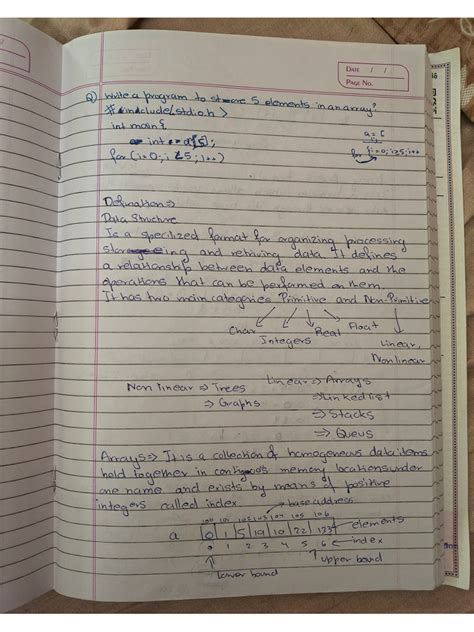 DATE / /
PAGE NO.
Q) Write a program to store 5 elements in an array?
#include<stdio.h>
int main{
int a[5];
for (i=0; i≤5; i++)
a = [
for {i=0; i≥5; i++
Defination⇒
Data Structure
Is a specilized format for organizing processing
storeing and retriving data. It defines
a relationship between data elements and the
operations that can be perfumed on them.
It has two main categories Primitive and Non-Primitive
Char Integers Real Float Linear,
Nonlinear
Non linear ⇒ Trees
⇒ Graphs
Linear ⇒ Arrays
⇒ Linked list
⇒ Stacks
⇒ Queus
Arrays ⇒ It is a collection of homogeneus data items
held together in contiguous memory locations under
one name and exists by means of positive
integers called index.
→ base address
100 101 102 103 104 105 106
a 0 1 5 19 10 22 123 elements
0 1 2 3 4 5 6 ← index
lower bound
upper bound